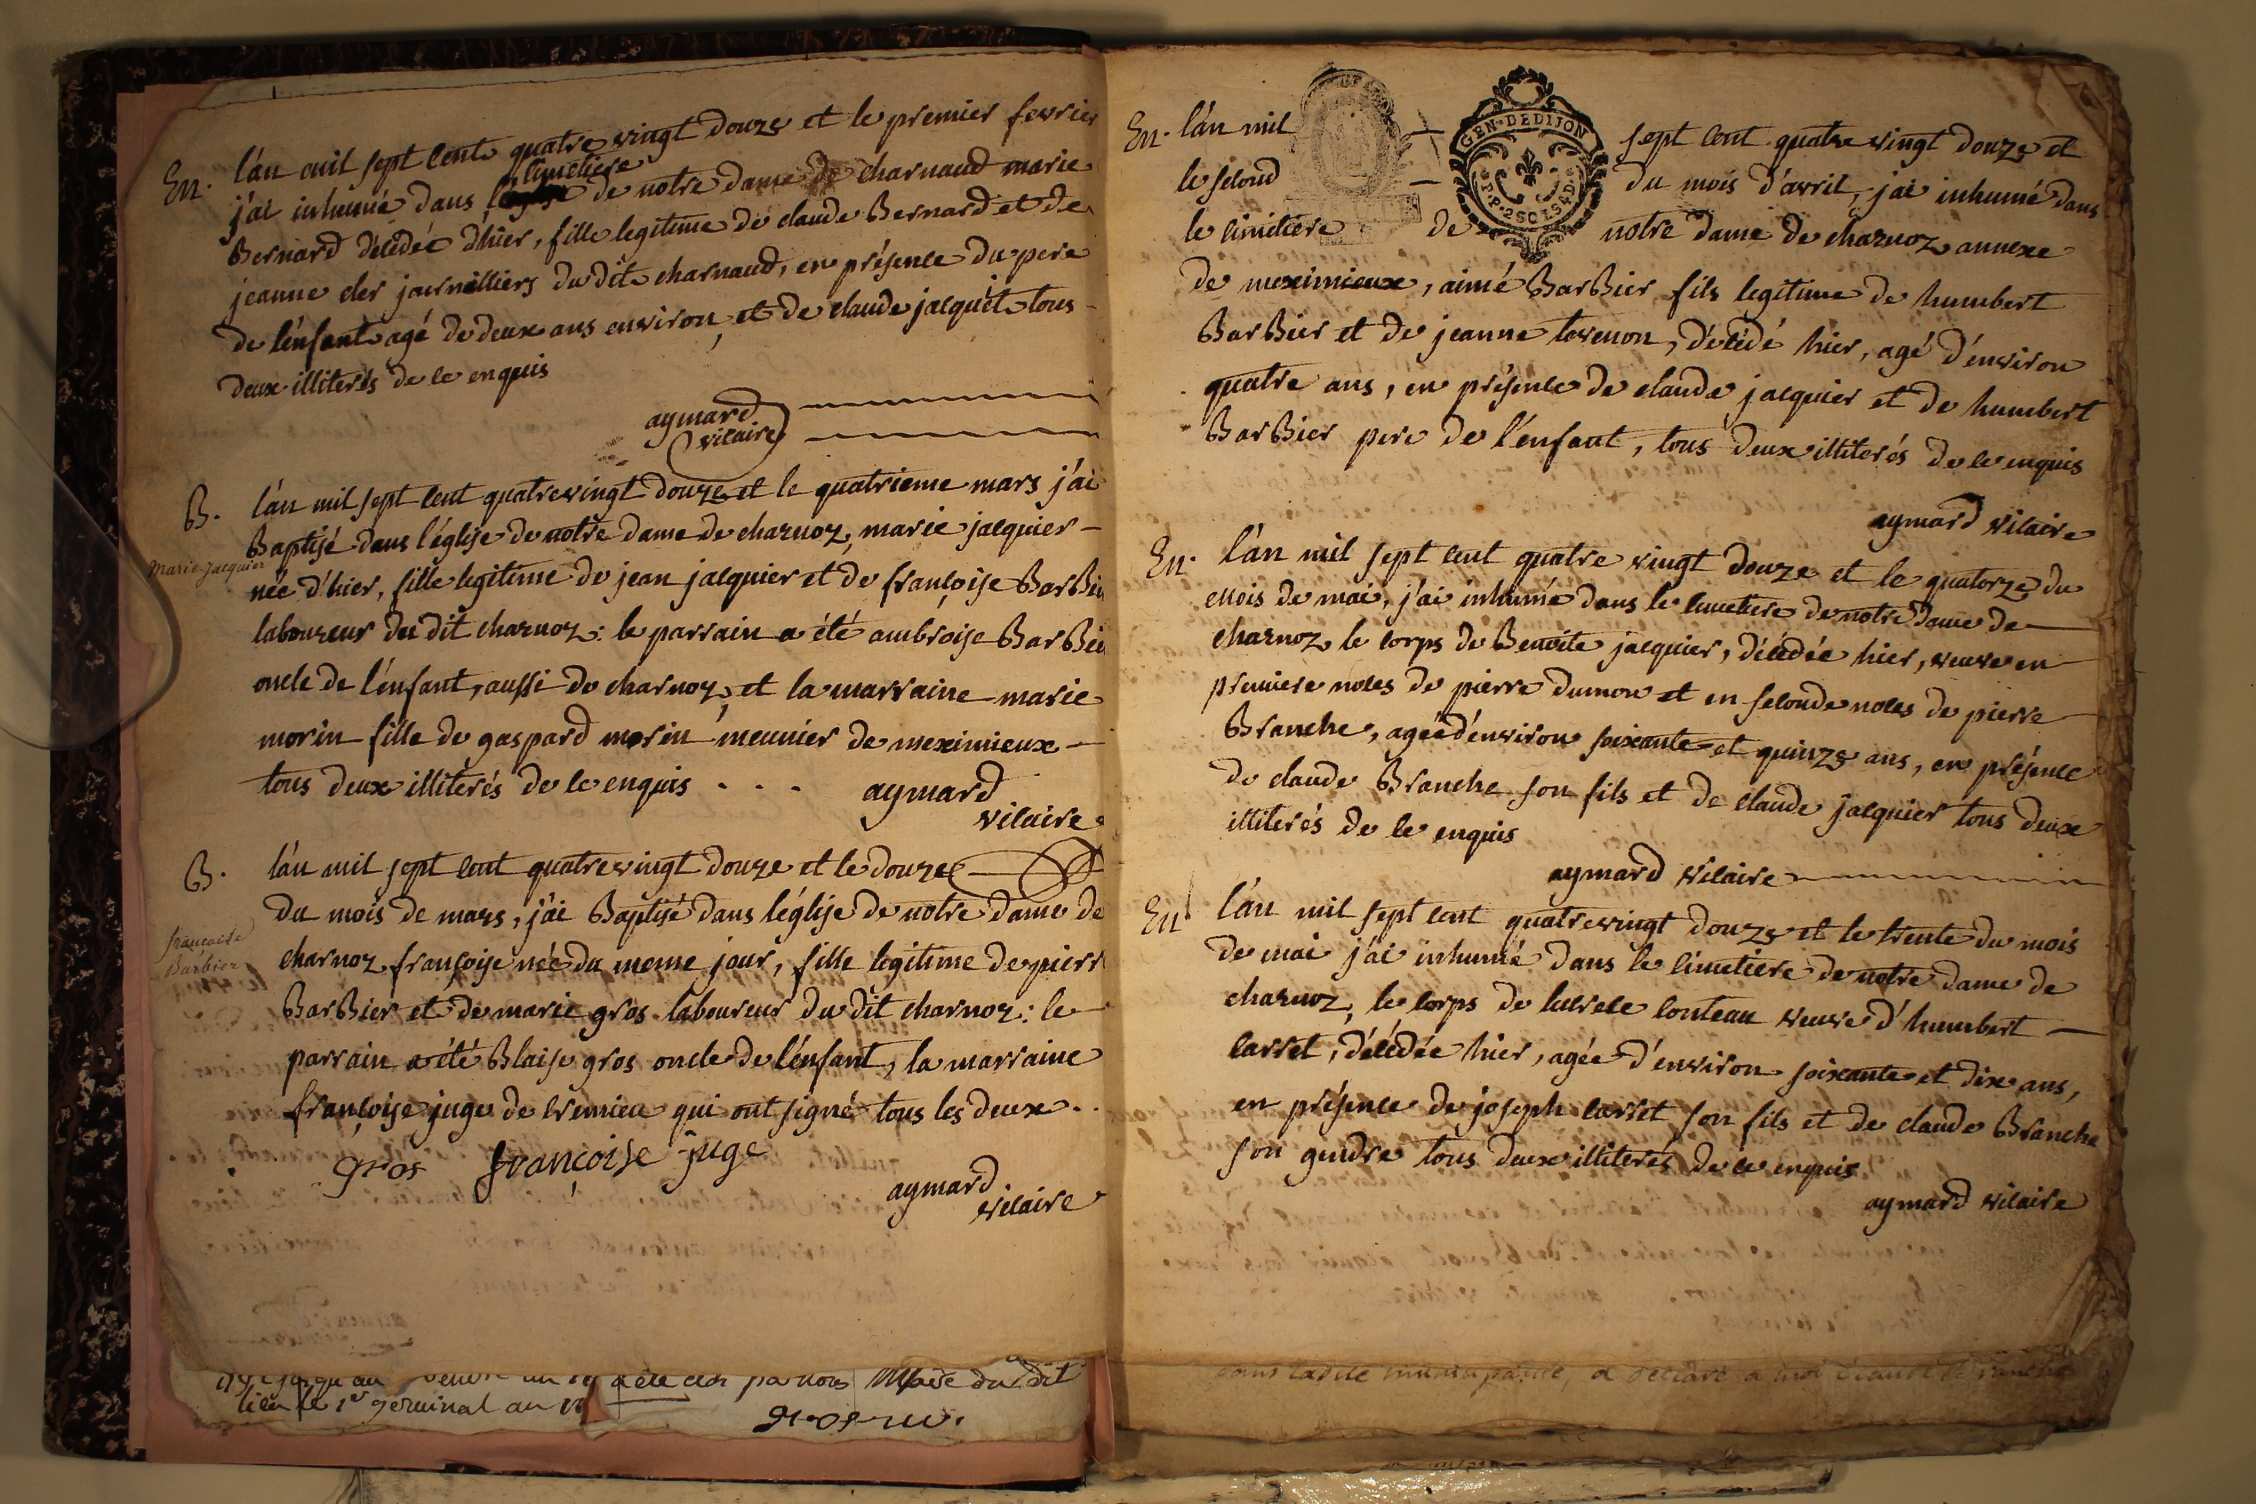 En. l'an mil sept cent quatre vingt douze et le premier fevrier
cimetiere
j'ai inhumé dans de notre dame de charnaud marie
Bernard décédée d'hier, fille legitime de claude Bernard et de
jeanne cler journalliers du dit charnaud, en présence du pere
de l'enfant agé de deux ans environ, et de claude jacquet tous
deux illiterés de ce enquis
aymard
vicaire
B. l'an mil sept cent quatre vingt douze et le quatrieme mars j'ai
Baptisé dans l'église de notre dame de charnoz, marie jacquier
marie jacquier
née d'hier, fille legitime de jean jacquier et de françoise BarBier
laboureur du dit charnoz: le parrain a été ambroise BarBier
oncle de l'enfant, aussi de charnoz, et la marraine marie
morin fille de gaspard morin meunier de meximieux
tous deux illiterés de ce enquis . . . aymard
vicaire
B. l'an mil sept cent quatre vingt douze et le douze
du mois de mars, j'ai Baptisé dans l'église de notre dame de
francoise
Barbier
charnoz françoise née du meme jour, fille legitime de pierr
BarBier et de marie gros laboureur du dit charnoz: le
parrain a été Blaise gros oncle de l'enfant, la marraine
françoise juge de cremieu qui ont signé tous les deux . .
gros françoise juge
aymard
vicaire
a été par nous Maire du dit
lieu le 1er germinal an
En. l'an mil sept cent quatre vingt douze et
GEN. DE DIJON
le second du mois d'avril, j'ai inhumé dans
le cimetiere de notre dame de charnoz annexe
de meximieux, aimé BarBier fils legitime de humbert
BarBier et de jeanne tevenon, décédé hier, agé d'environ
quatre ans, en présence de claude jacquier et de humbert
BarBier pere de l'enfant, tous deux illiterés de ce enquis
aymard vicaire
En. l'an mil sept cent quatre vingt douze et le quatorze du
mois de mai, j'ai inhumé dans le cimetiere de notre dame de
charnoz le corps de Benoite jacquier, décédée hier, veuve en
premiere noces de pierre dumon et en seconde noces de pierre
Branche, agée d'environ soixante et quinze ans, en présence
de claude Branche son fils et de claude jacquier tous deux
illiterés de ce enquis
aymard vicaire
En l'an mil sept cent quatre vingt douze et le trente du mois
de mai j'ai inhumé dans le cimetiere de notre dame de
charnoz, le corps de lucrece conteau veuve d'humbert
carret, décédée hier, agée d'environ soixante et dix ans,
en présence de joseph carret son fils et de claude Branche
son gendre tous deux illiterés de ce enquis
aymard vicaire
a declaré a moi